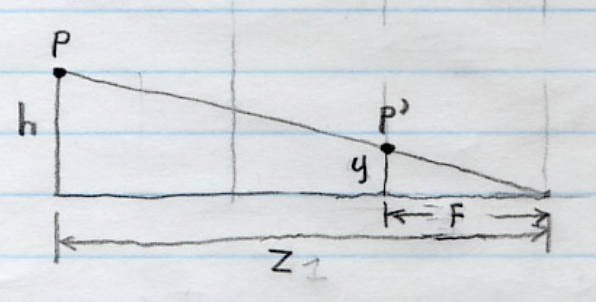 P
h
P'
y
F
Z1